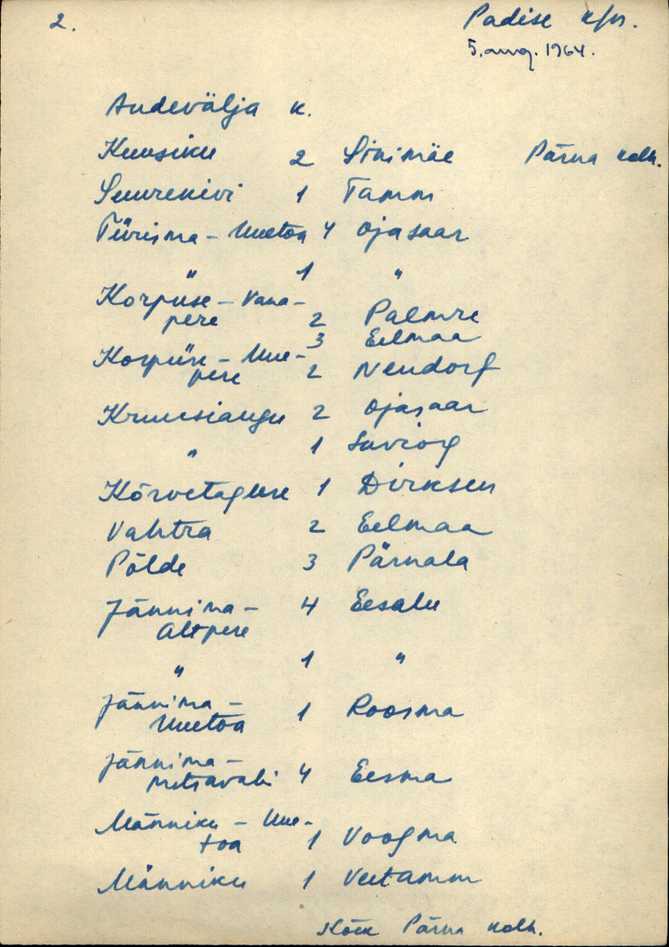 2.
Padise k/n.
5. aug. 1964.
Audevälja k.
Kuusiku 2 Sinimäe Pärna kolh.
Suurekivi 1 Tamm
Türisma - Uuetoa 4 Ojasaar
" 1 "
Korpuse - Vana-
pere 2 Palmre
3 Eelmaa
Korpuse - Uue-
pere 2 Neudorf
Kruusiaugu 2 Ojasaar
" 1
Kõrvetaguse 1 Dirksen
Vahtra 2 Eelmaa
Põlde 3 Pärnala
Jännima - 4 Eesalu
Altpere
" 1 "
Jännima -
Uuetoa 1 Roosma
Jännima -
metsavahi 4 Eesma
Männiku - Uue-
toa 1 Voogma
Männiku 1 Veetamm
Kõik Pärna kolh.